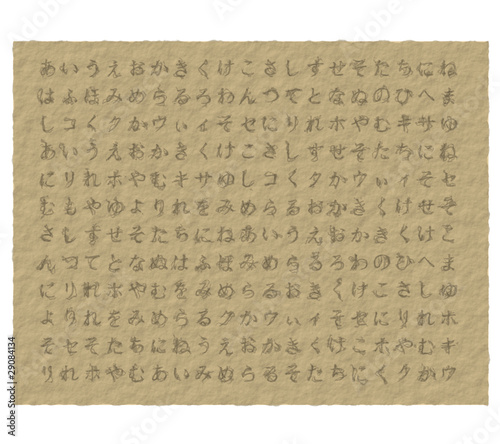 あいうえおかきくけこさしすせそたちにね
はふほみめらるろわんつてとなぬのひへま
しコくタかウぃィそセにりれホやむキサゆ
あいうえおかきくけこさしすせそたちにね
にりれホやむキサゆしコくタかウぃィそセ
むもやゆよりれをみめらるおかきくけせそ
さしすせそたちにねあいうえおかきくけこ
んつてとなぬはふほみめらるろわのひへま
にりれホやむをみめらるおきくけこさしゆ
よりれをみめらるクかウぃィそセにりれホ
そセそたちにねうえおかきくけこホやむキ
りれホやむあいみめらるそくたちにくタかウ